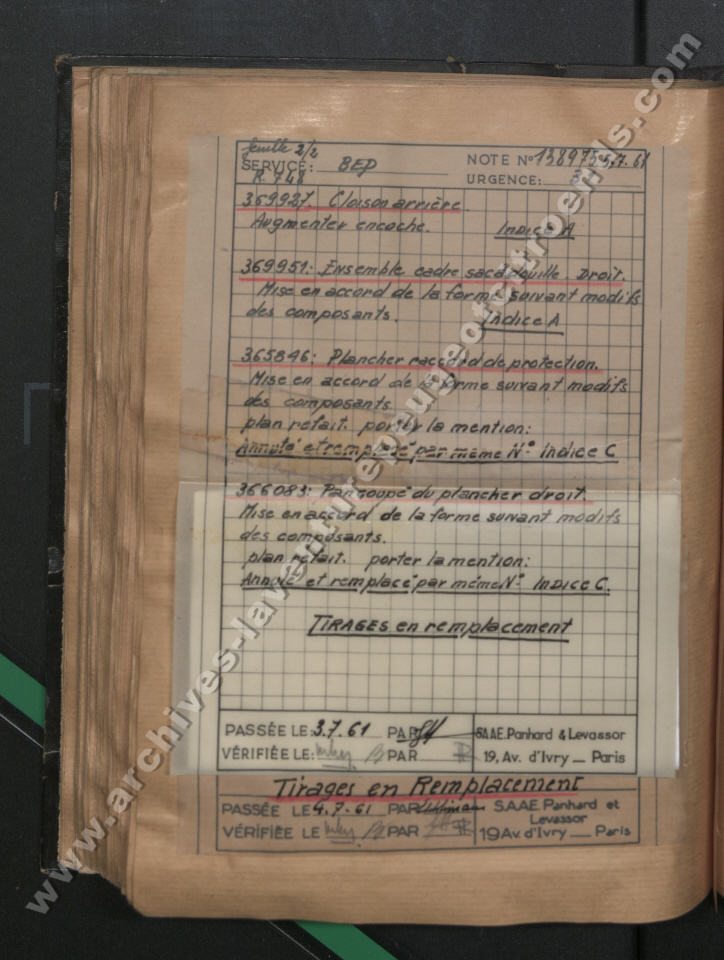 feuille 2/2
SERVICE: BEP NOTE N° 138975 5.7.61
R. 748 URGENCE:
369927. Cloison arrière.
Augmenter encoche. Indice A
369951: Ensemble cadre sac à douille. Droit.
Mise en accord de la forme suivant modifs
des composants. Indice A
365846: Plancher raccord de protection.
Mise en accord de la forme suivant modifs
des composants
plan refait. porter la mention:
Annulé et remplacé par même N° Indice C
366083: Pan coupé du plancher droit.
Mise en accord de la forme suivant modifs
des composants.
plan refait. porter la mention:
Annulé et remplacé par même N° Indice C.
TIRAGES en remplacement
PASSÉE LE: 3.7.61 PAR S.A.A.E. Panhard & Levassor
VÉRIFIÉE LE: PAR 19, Av. d'Ivry _ Paris
Tirages en Remplacement
PASSÉE LE 4.7.61 PAR S.A.A.E. Panhard et
Levassor
VÉRIFIÉE LE PAR 19 Av. d'Ivry __ Paris
www.archives-laventurepeugeotcitroends.com